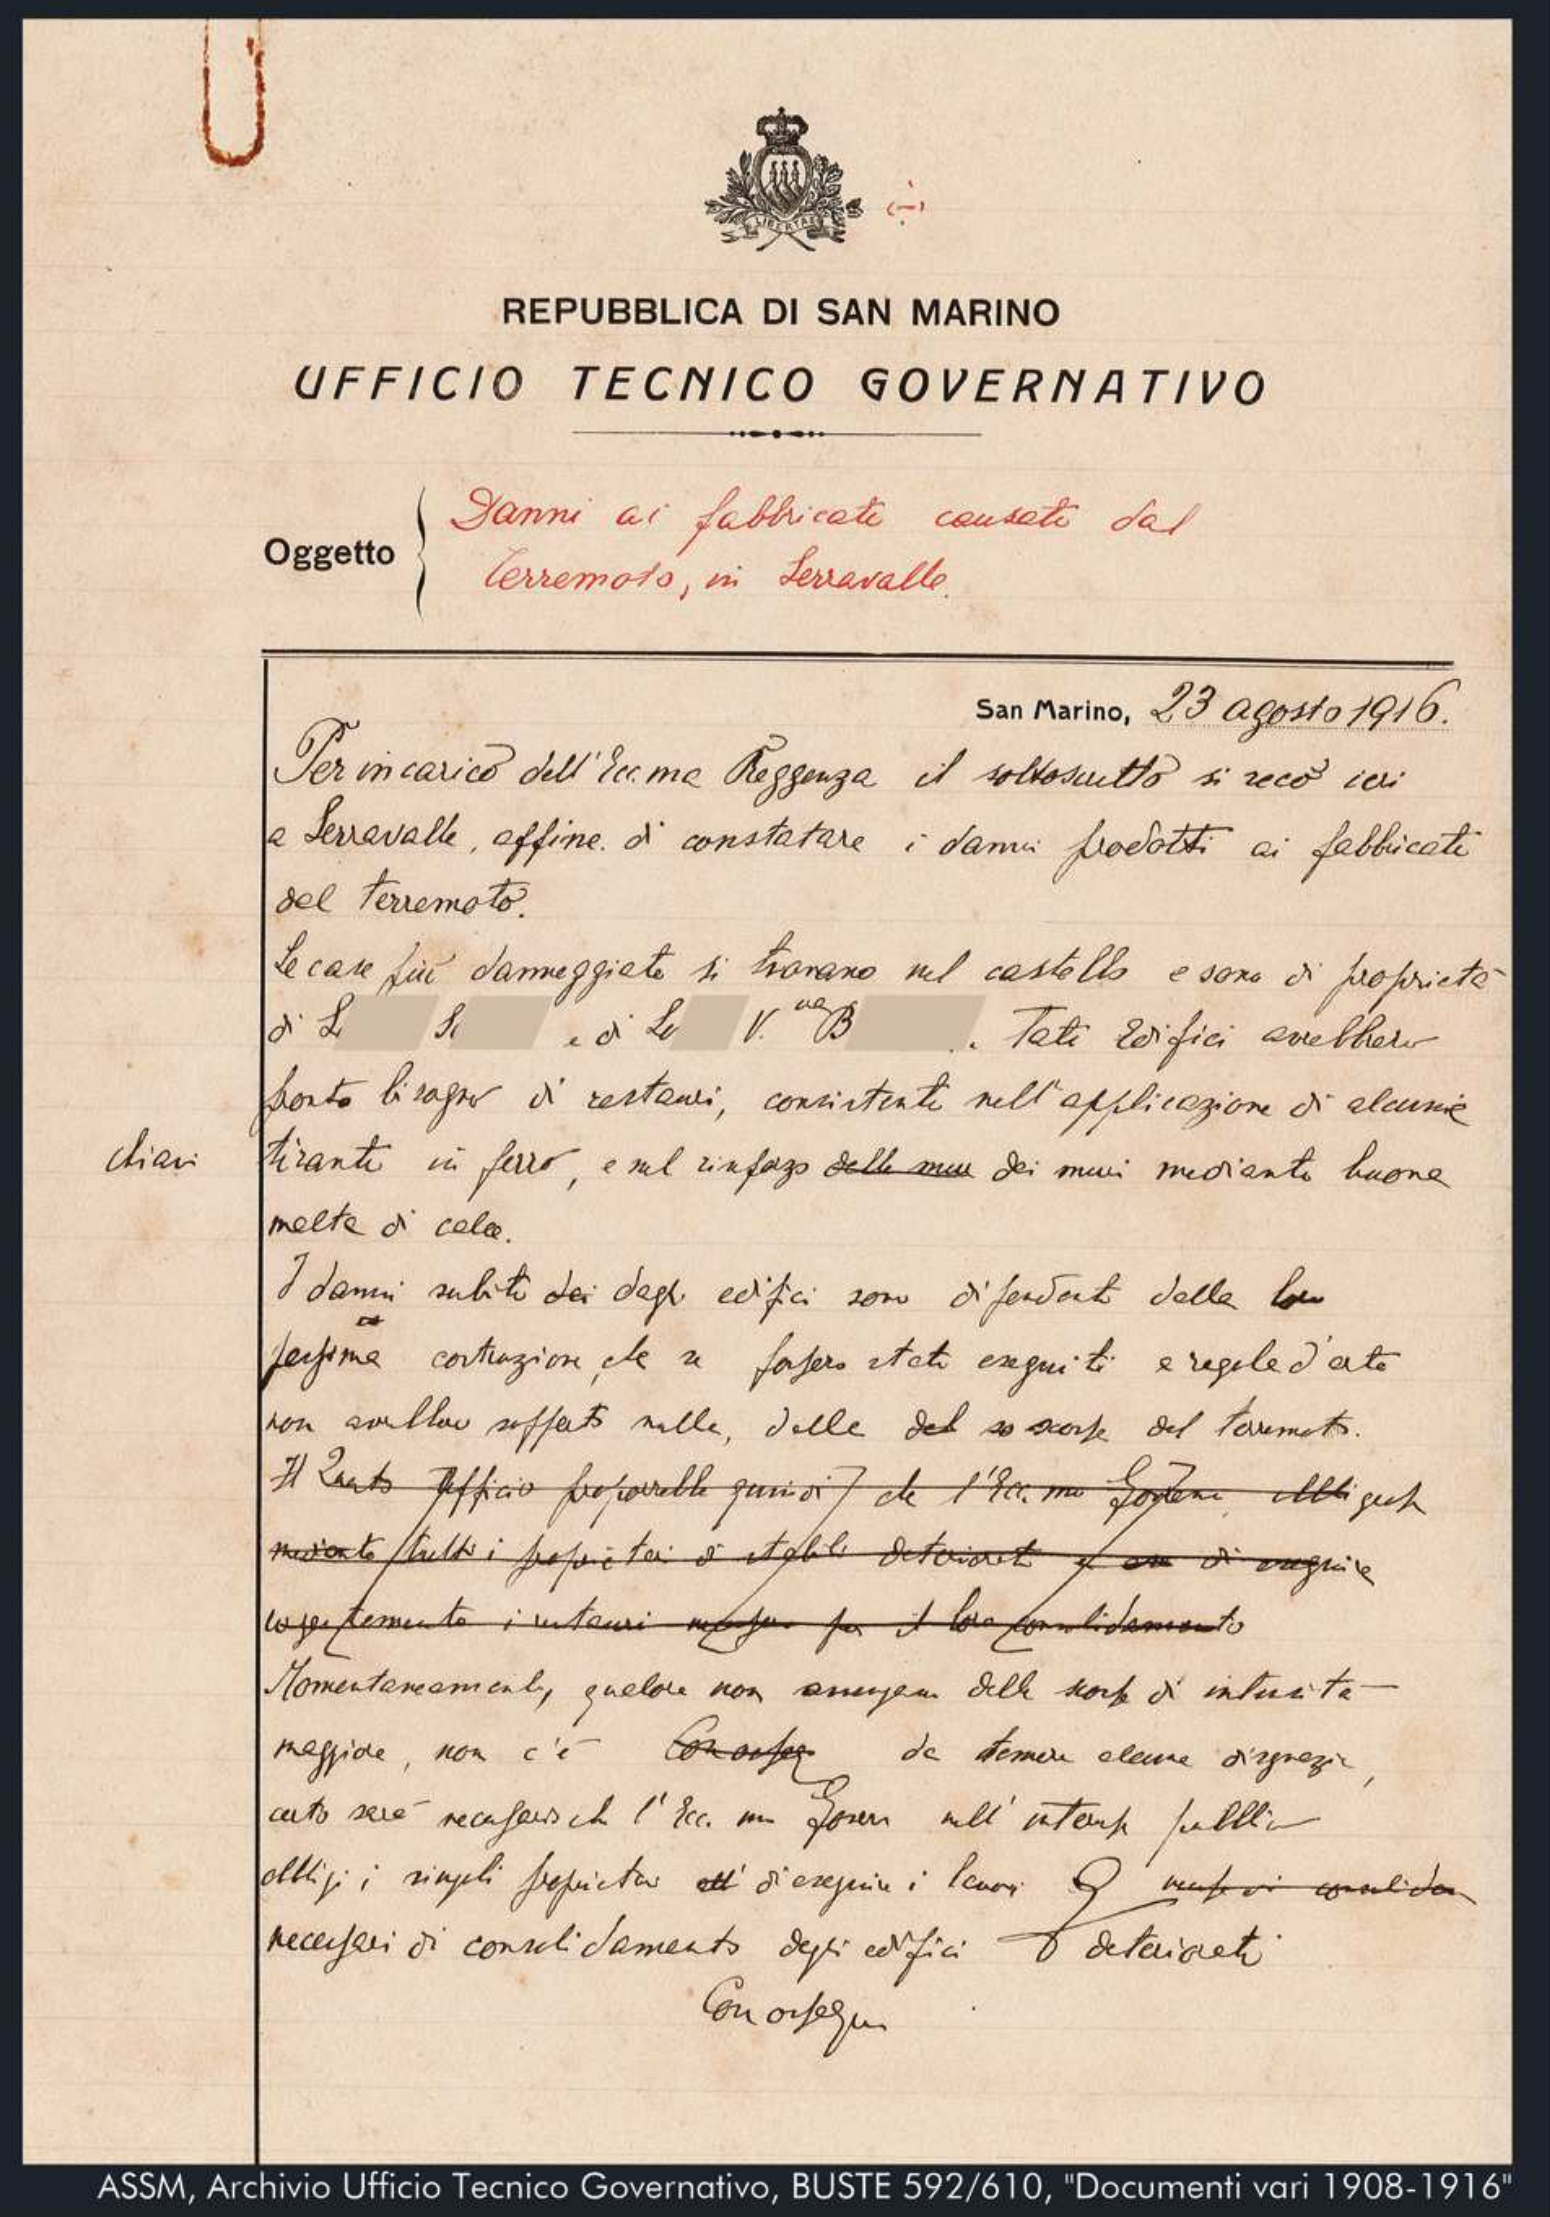 LIBERTAS
REPUBBLICA DI SAN MARINO
UFFICIO TECNICO GOVERNATIVO
Oggetto
Danni ai fabbricati causati dal
terremoto, in Serravalle.
San Marino, 23 agosto 1916.
Per incarico dell'Ecc.ma Reggenza il sottoscritto si recò ieri
a Serravalle, affine di constatare i danni prodotti ai fabbricati
del terremoto.
Le case più danneggiate si trovano nel castello e sono di proprietà
di L S e di Le V.va B . Tali edifici avrebbero
pronto bisogno di restauri, consistenti nell'applicazione di alcune
chiavi
tiranti in ferro, e nel rinforzo delle mur dei muri mediante buona
malta di calce.
I danni subiti dai dagli edifici sono dipendenti dalla loro
pessima costruzione, che se fossero stati eseguiti a regola d'arte
non avrebbero sofferto nulla, dalle del so scosse del terremoto.
Il Ufficio proporrebbe quindi che l'Ecc.mo Governo obbligasse
mediante tutti i proprietari di stabili deteriorati di eseguire
i restauri per il loro consolidamento
Momentaneamente, qualora non avvengano delle scosse di intensità
maggiore, non c'è Con osseq da temere alcuna disgrazia,
certo sarà necessario che l'Ecc.mo Governo nell'interesse pubblico
obblighi i singoli proprietari all' di eseguire i lavori consolidam
necessari di consolidamento degli edifici deteriorati
Con ossequi
ASSM, Archivio Ufficio Tecnico Governativo, BUSTE 592/610, "Documenti vari 1908-1916"